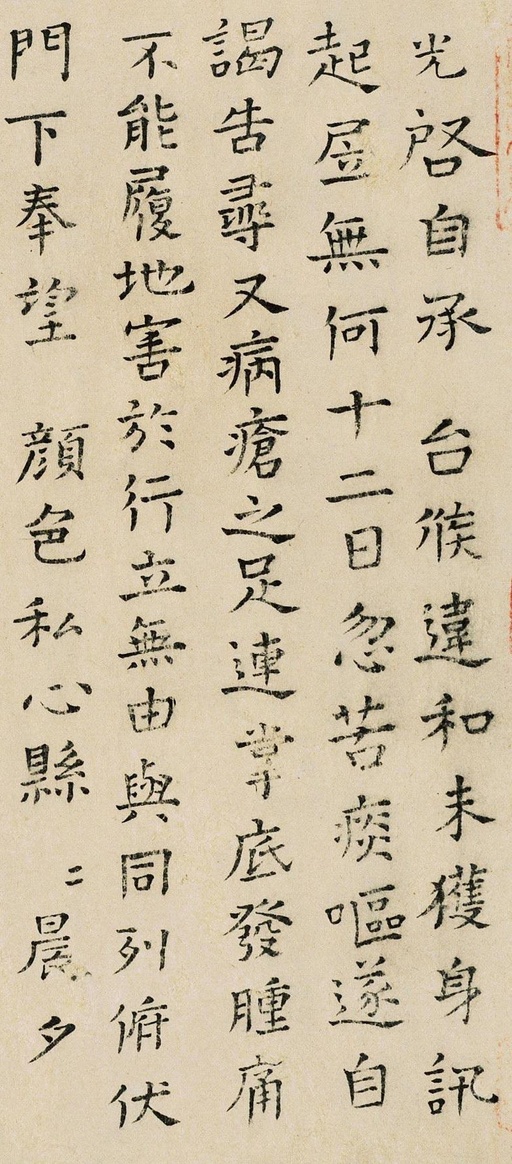 光啓自承 台候違和未獲身訊
起居無何十二日忽苦痰嘔遂自
謁告尋又病瘡之足連掌底發腫痛
不能履地害於行立無由與同列俯伏
門下奉望 顔色私心縣〻晨夕